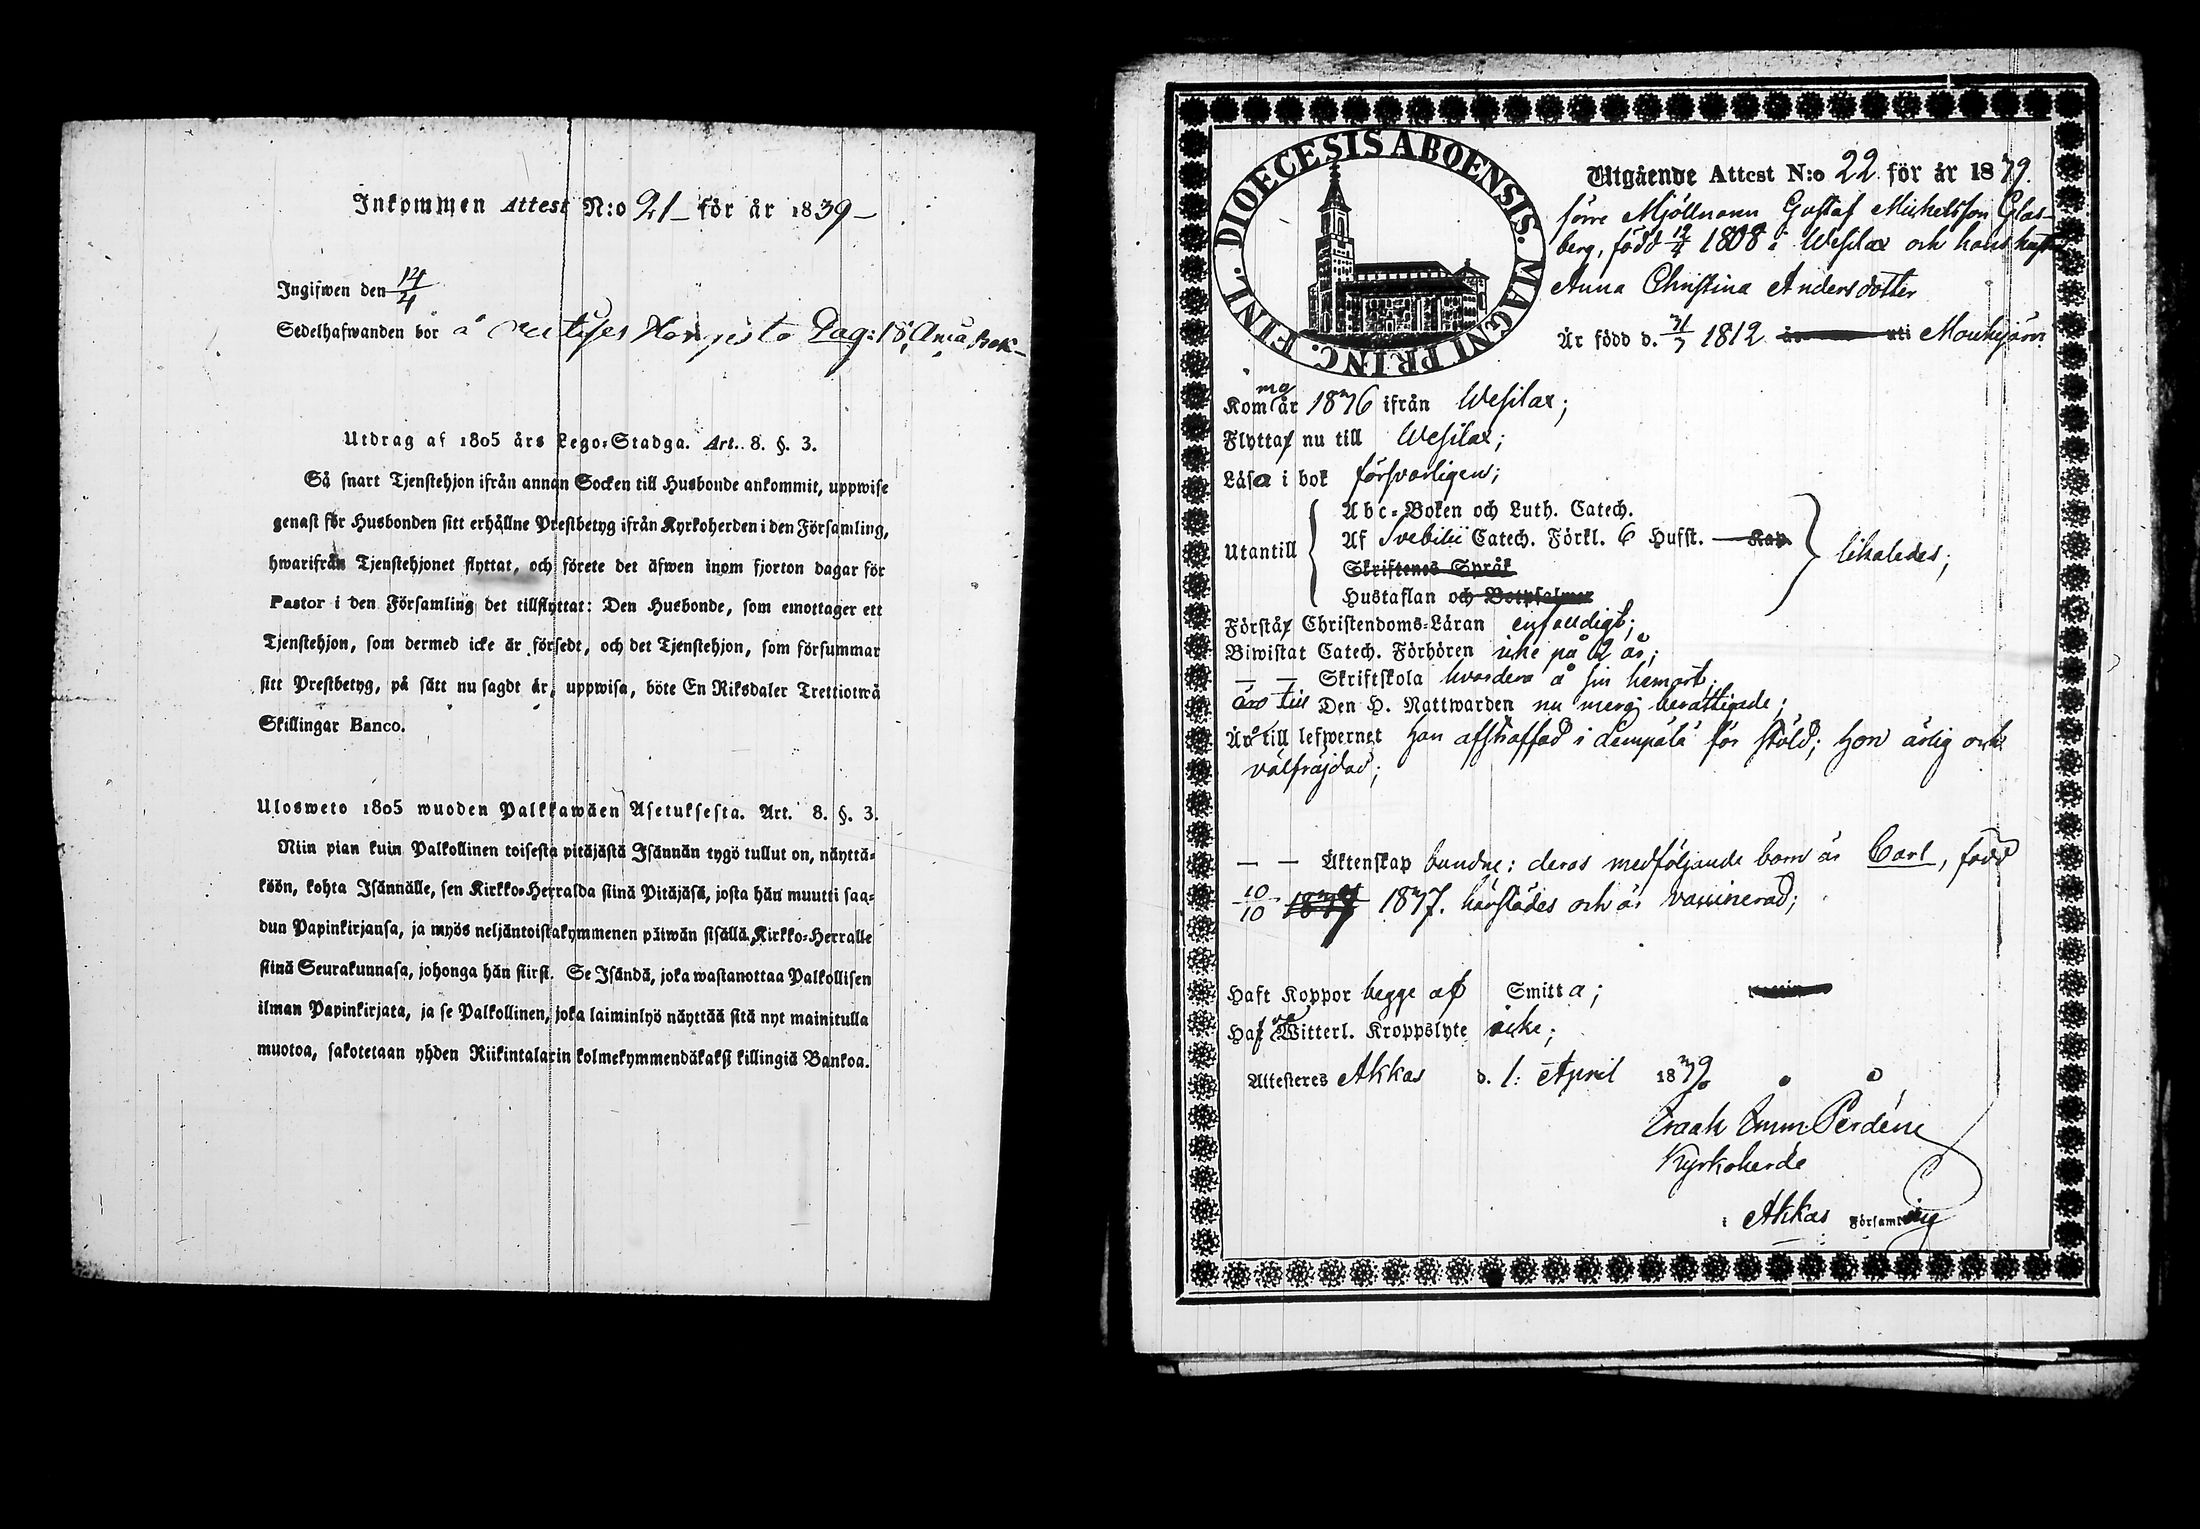 Inkommen Attest N:o 21 för år 1839
Ingifwen den 14/4
Sedelhafwanden bor å
Pag: 18
Utdrag af 1805 års Lego-Stadga. Art. 8. §. 3.
Så snart Tjenstehjon ifrån annan Socken till Husbonde ankommit, uppwise
genast för Husbonden sitt erhållne Prestbetyg ifrån Kyrkoherden i den Församling,
hwarifrån Tjenstehjonet flyttat, och förete det äfwen inom fjorton dagar för
Pastor i den Församling det tillflyttat: Den Husbonde, som emottager ett
Tjenstehjon, som dermed icke är försedt, och det Tjenstehjon, som försummar
sitt Prestbetyg, på sätt nu sagdt är, uppwisa, böte En Riksdaler Trettiotwå
Skillingar Banco.
Ulosweto 1805 wuoden Palkkawäen Asetuksesta. Art. 8. §. 3.
Niin pian kuin Palkollinen toisesta pitäjästä Isännän tygö tullut on, näyttä-
köön, kohta Isännälle, sen Kirkko-Herralda siinä Pitäjäsä, josta hän muutti saa-
dun Papinkirjansa, ja myös neljäntoistakymmenen päiwän sisällä, Kirkko-Herralle
siinä Seurakunnasa, johonga hän siirsi. Se Isändä, joka wastanottaa Palkollisen
ilman Papinkirjata, ja se Palkollinen, joka laiminlyö näyttää sitä nyt mainitulla
muotoa, sakotetaan yhden Riikintalarin kolmekymmendäkaksi killingiä Bankoa.
DIOECESIS ABOENSIS. MAGNI PRINC. FINL.
Utgående Attest N:o 22 för år 1839.
förre Mjöllnaren Gustaf Michelsson Glas-
berg, född 12/4 1808 i Wesilax och hans hustru
Anna Christina Andersdotter
Är född d. 31/7 1812 uti Mouhijärvi
Komma år 1836 ifrån Wesilax;
Flytta nu till Wesilax;
Läsa i bok försvarligen;
Utantill
Abc-Boken och Luth. Catech.
Af Svebilii Catech. Förkl. 6 Hufst. Kap.
Skriftenes Språk
Hustaflan och Botpsalmer
likaledes;
Förstå Christendoms-Läran enfaldigt;
Biwistat Catech. Förhören icke på 2 år;
— — Skriftskola hvardera å sin hemort;
äro till Den H. Nattwarden nu mera berättigade;
Äro till lefwernet Han afstraffad i Lempälä för stöld; Hon ärlig och
välfräjdad;
— — Äktenskap bundne: deras medföljande barn är Carl, född
10/10 1837. härstädes och är vaccinerad;
Haft Koppor begge af Smitta;
Haf Witterl. Kroppslyte icke;
Attesteres Akkas d. 1: April 1839
Isaak Emm Perdén
Kyrkoherde
i Akkas Församling